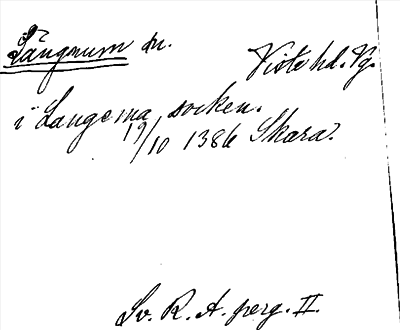 Långnum sn.
Viste hd. Vg.
i Langema socken.
19/10 1386 Skara.
Sv. R. A. perg. II.